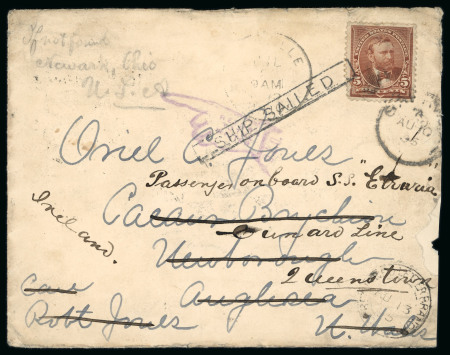 If not found
Newark, Ohio
U.S.A
9 AM
5 5
SHIP SAILED
AU 10
Oriel C. Jones
Passenger on board S.S. "Etruria"
Cunard Line
Newborough
Ireland.
Queenstown
Anglesea
Care
Robt Jones
N. Wales